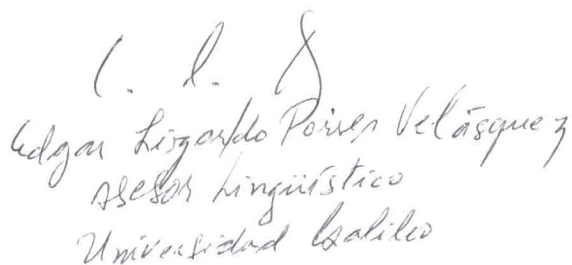 Edgar Lizardo Porres Velásquez
Asesor Lingüístico
Universidad Galileo